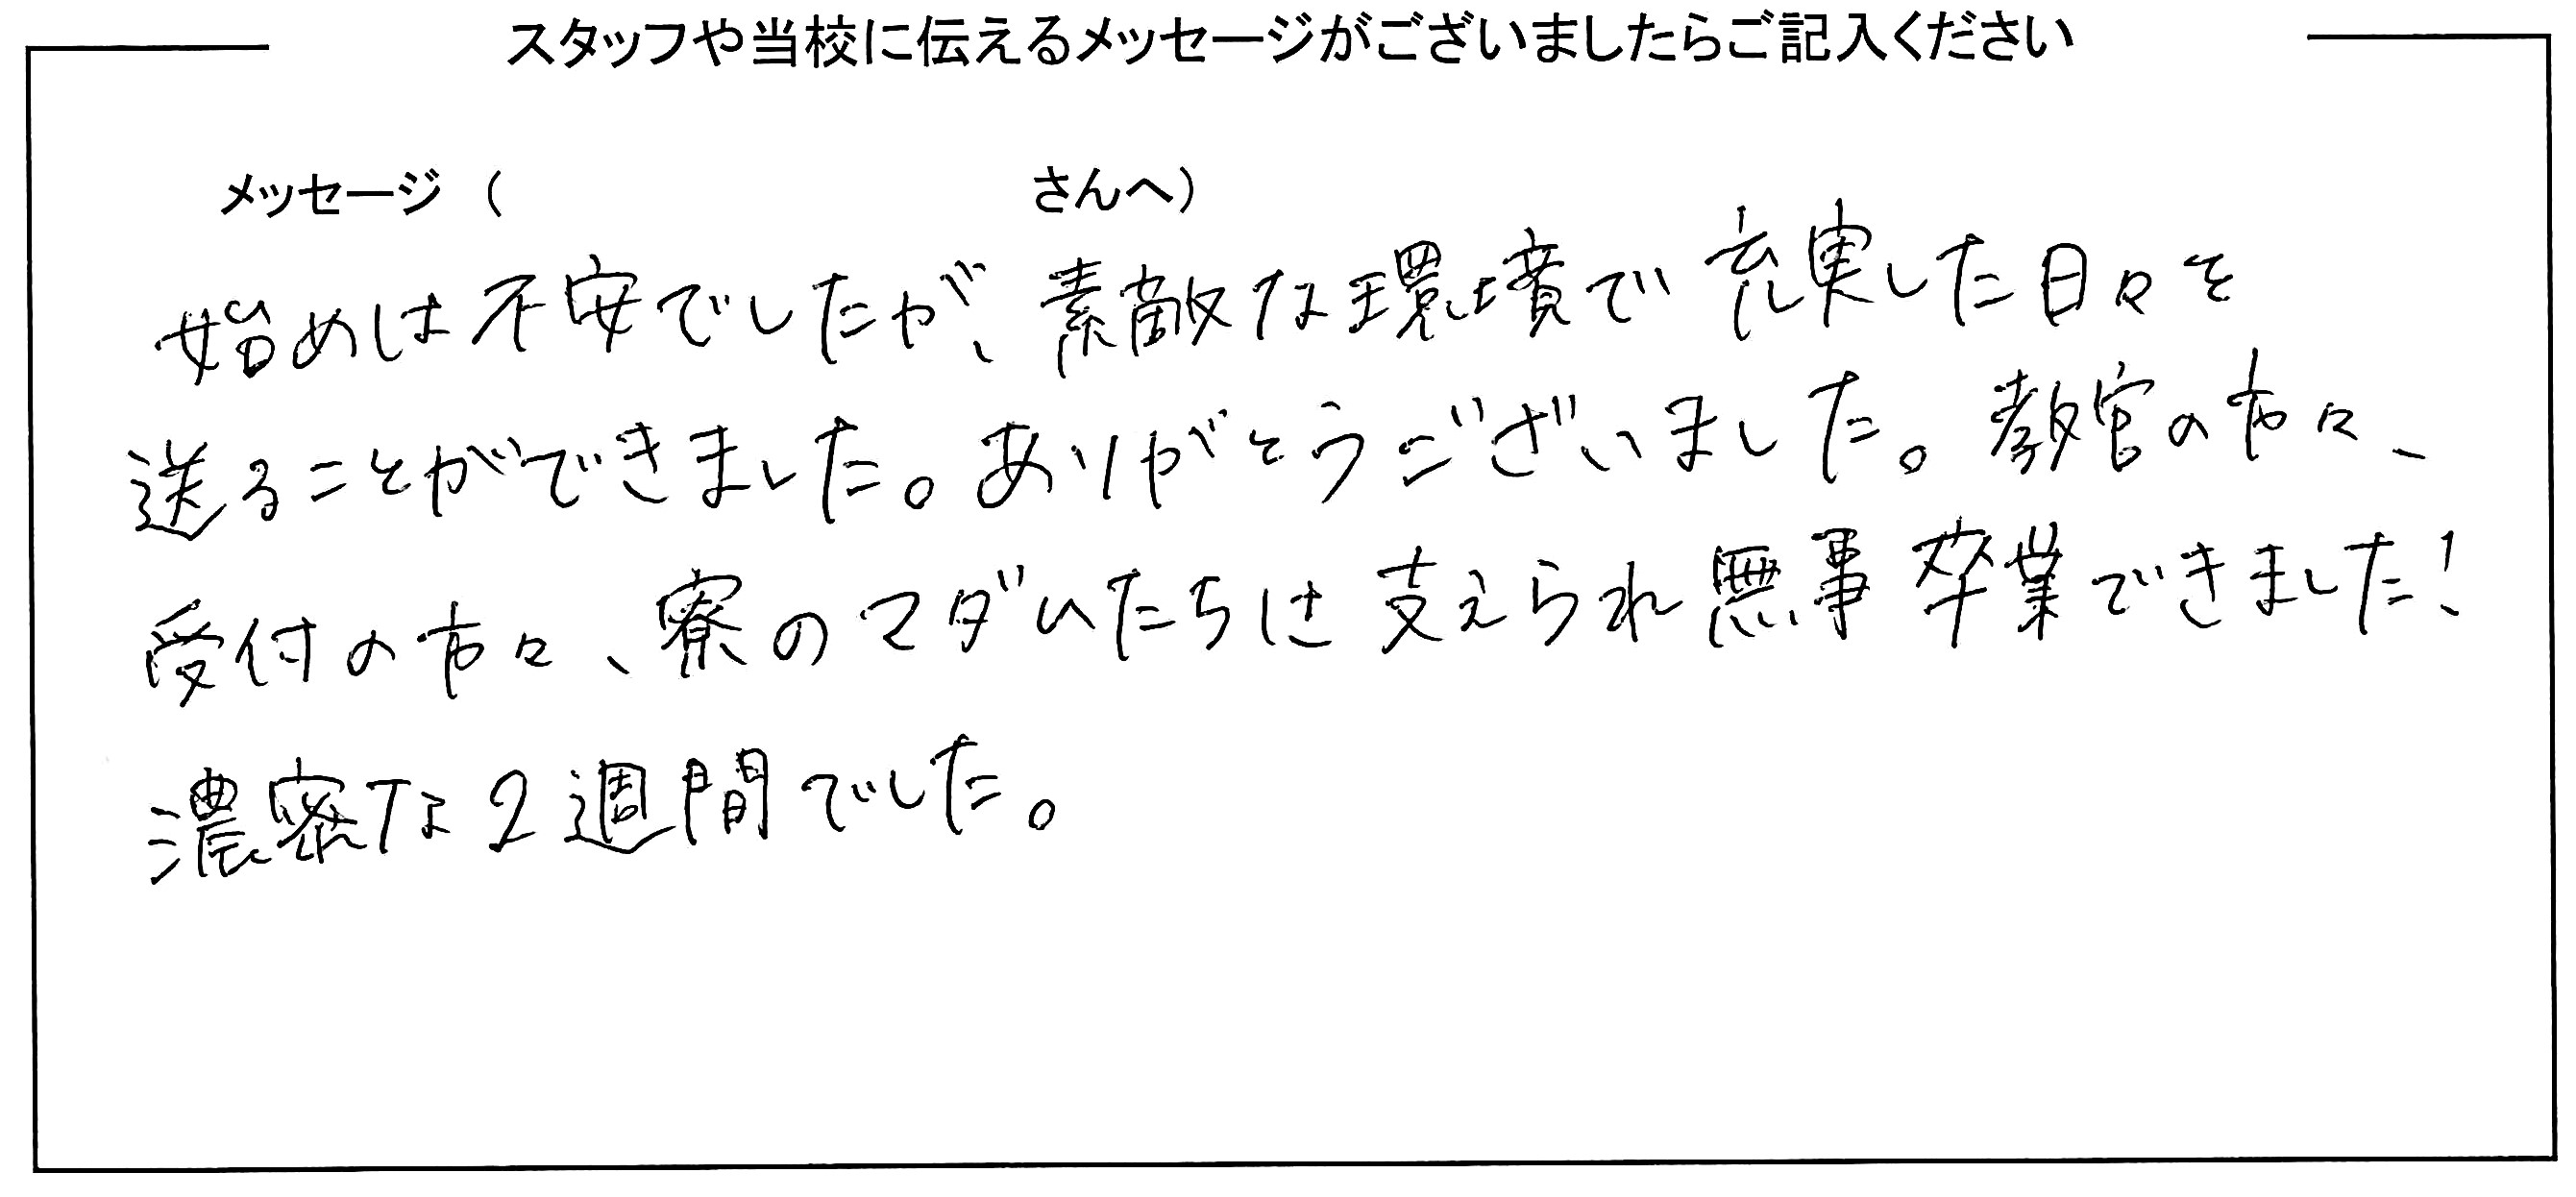 スタッフや当校に伝えるメッセージがございましたらご記入ください
メッセージ （　　　　　　さんへ）
始めは不安でしたが、素敵な環境で充実した日々を
送ることができました。ありがとうございました。教官の方々、
受付の方々、寮のマダムたちに支えられ無事卒業できました！
濃密な2週間でした。